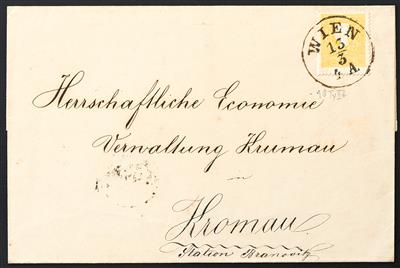 WIEN
13/3
4 A.
Herrschaftliche Economie
Verwaltung Krumau
in
Kromau
Station Branovitz